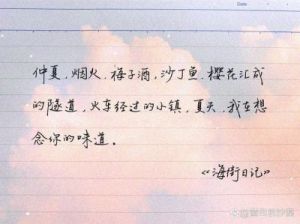 仲夏，烟火，梅子酒，沙丁鱼，樱花汇成
的隧道，火车经过的小镇，夏天，我在想
念你的味道。
《海街日记》